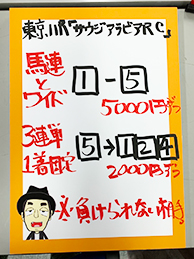 東京11R「サウジアラビアRC」
馬連
と
ワイド
1 - 5
5000円ずつ
3連単
1着固定
5→124
2000円ずつ
負けられない相手